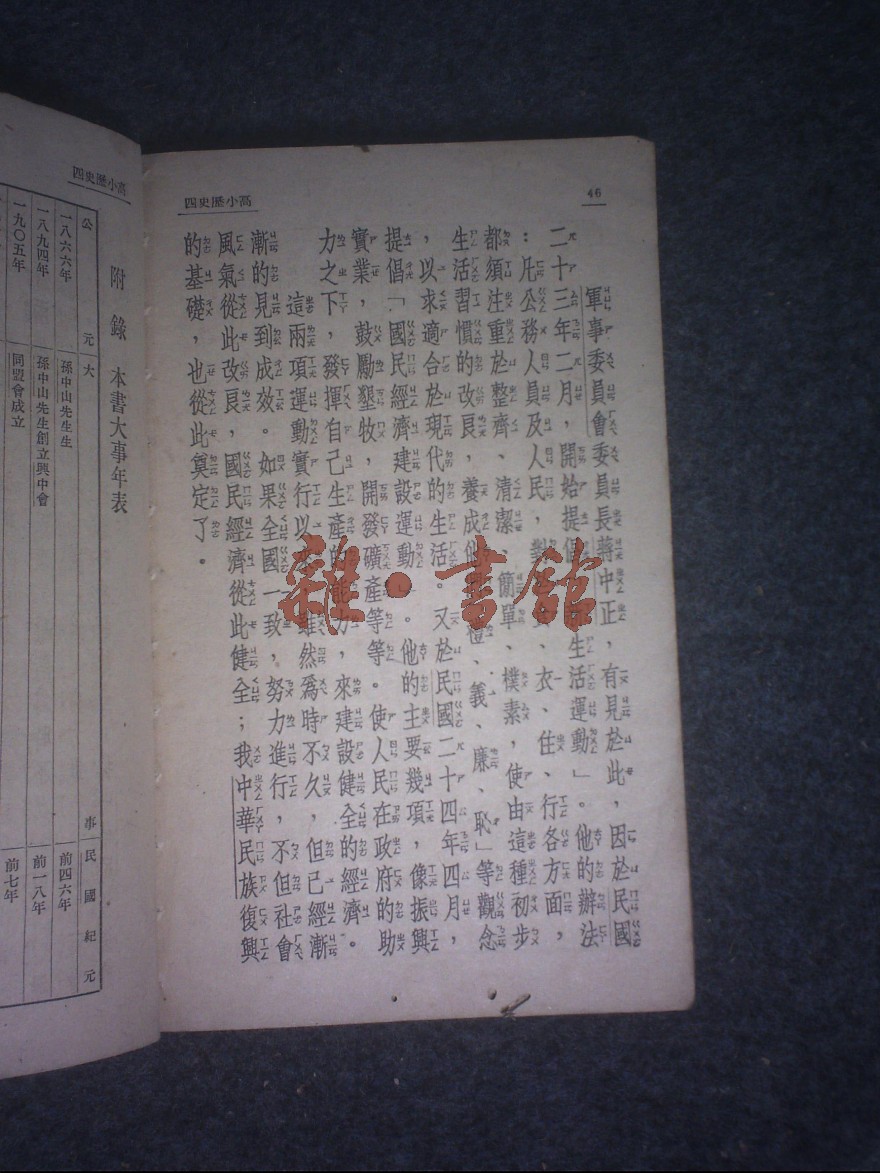 46
高小歷史四
軍事委員會委員長蔣中正，有見於此，因於民國
二十三年二月，開始提倡生活運動」。他的辦法
：凡公務人員及人民，對、衣、住、行各方面，
都須注重於整齊、清潔、簡單、樸素，使由這種初步
生活習慣的改良，養成他禮、義、廉、恥」等觀念
，以求適合於現代的生活。又於民國二十四年四月，
提倡「國民經濟建設運動」。他的主要幾項，像振興
實業，鼓勵墾牧，開發礦產等等。使人民在政府的助
力之下，發揮自己生產的能力，來建設健全的經濟。
這兩項運動實行以來，雖然爲時不久，但已經漸
漸的見到成效。如果全國一致，努力進行，不但社會
風氣從此改良，國民經濟從此健全；我中華民族復興
的基礎，也從此奠定了。
雜·書館
高小歷史四
附錄 本書大事年表
公元 大事 民國紀元
一八六六年 孫中山先生生 前四六年
一八九四年 孫中山先生創立興中會 前一八年
一九〇五年 同盟會成立 前七年